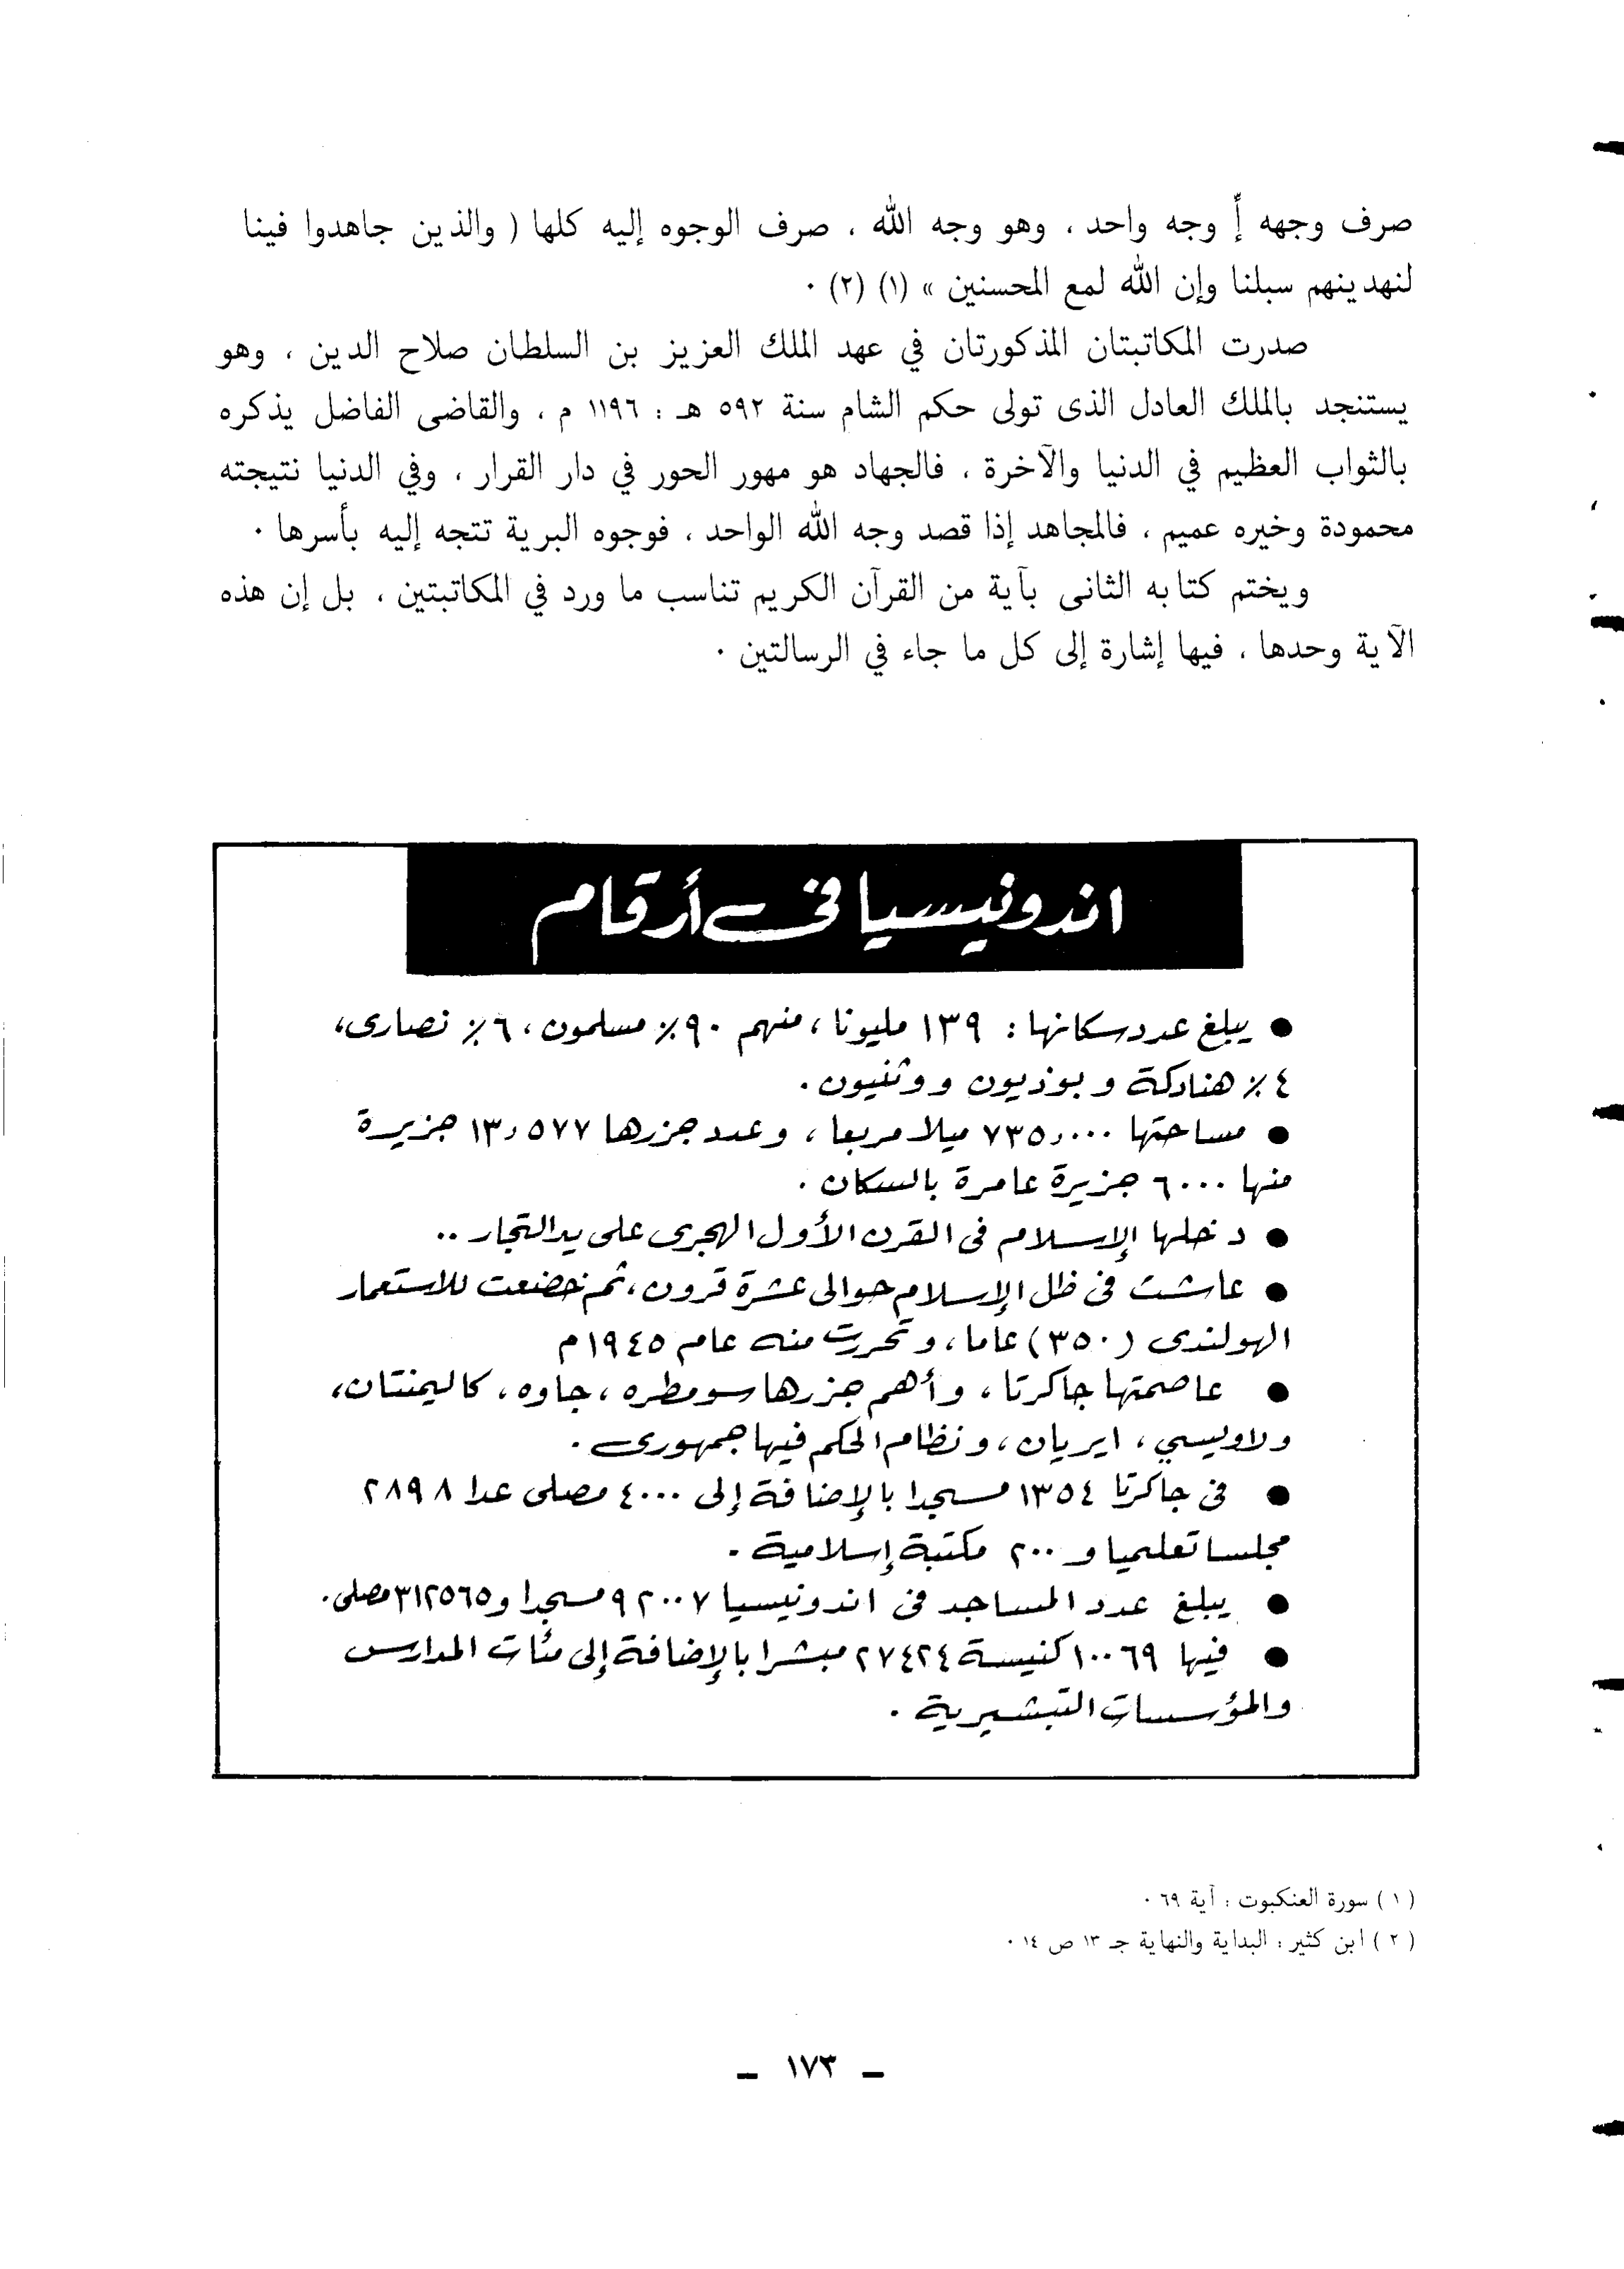 صرف وجهه إ وجه واحد ، وهو وجه الله ، صرف الوجوه إليه كلها ( والذين جاهدوا فينا
لنهدينهم سبلنا وإن الله لمع المحسنين » (١) (٢) ٠
صدرت المكاتبتان المذكورتان في عهد الملك العزيز بن السلطان صلاح الدين ، وهو
يستنجد بالملك العادل الذى تولى حكم الشام سنة ٥٩٢ هـ : ١١٩٦ م ، والقاضى الفاضل يذكره
بالثواب العظيم في الدنيا والآخرة ، فالجهاد هو مهور الحور في دار القرار ، وفي الدنيا نتيجته
محمودة وخيره عميم ، فالمجاهد إذا قصد وجه الله الواحد ، فوجوه البرية تتجه إليه بأسرها ٠
ويختم كتابه الثانى بآية من القرآن الكريم تناسب ما ورد في المكاتبتين ، بل إن هذه
الآية وحدها ، فيها إشارة إلى كل ما جاء في الرسالتين ٠
اندونيسيا في أرقام
● يبلغ عدد سكانها : ١٣٩ مليونا ، منهم ٩٠٪ مسلمون ، ٦٪ نصارى ،
٤٪ هنادكة و بوذيون و وثنيون .
● مساحتها ٧٣٥,٠٠٠ ميلا مربعا ، وعدد جزرها ١٣,٥٧٧ جزيرة
منها ٦٠٠٠ جزيرة عامرة بالسكان .
● دخلها الإسلام فى القرن الأول الهجرى على يد التجار ..
● عاشت فى ظل الإسلام حوالى عشرة قرون ، ثم خضعت للاستعمار
الهولندى (٣٥٠) عاما ، وتحررت منه عام ١٩٤٥ م
● عاصمتها جاكرتا ، وأهم جزرها سومطره ، جاوه ، كاليمنتان ،
ولاويسي ، ايريان ، ونظام الحكم فيها جمهورى .
● فى جاكرتا ١٣٥٤ مسجدا بالإضافة إلى ٤٠٠٠ مصلى عدا ٢٨٩٨
مجلسا تعلميا و ٢٠٠ مكتبة إسلامية .
● يبلغ عدد المساجد فى اندونيسيا ٩٢٠٠٧ مسجدا و ٣١٢٥٦٥ مصلى .
● فيها ١٠٠٦٩ كنيسة ٢٧٤٢٤ مبشرا بالإضافة إلى مئات المدارس
والمؤسسات التبشيرية .
( ١ ) سورة العنكبوت : آية ٦٩ ٠
( ٢ ) ابن كثير : البداية والنهاية جـ ١٣ ص ١٤ ٠
ــ ١٧٣ ــ